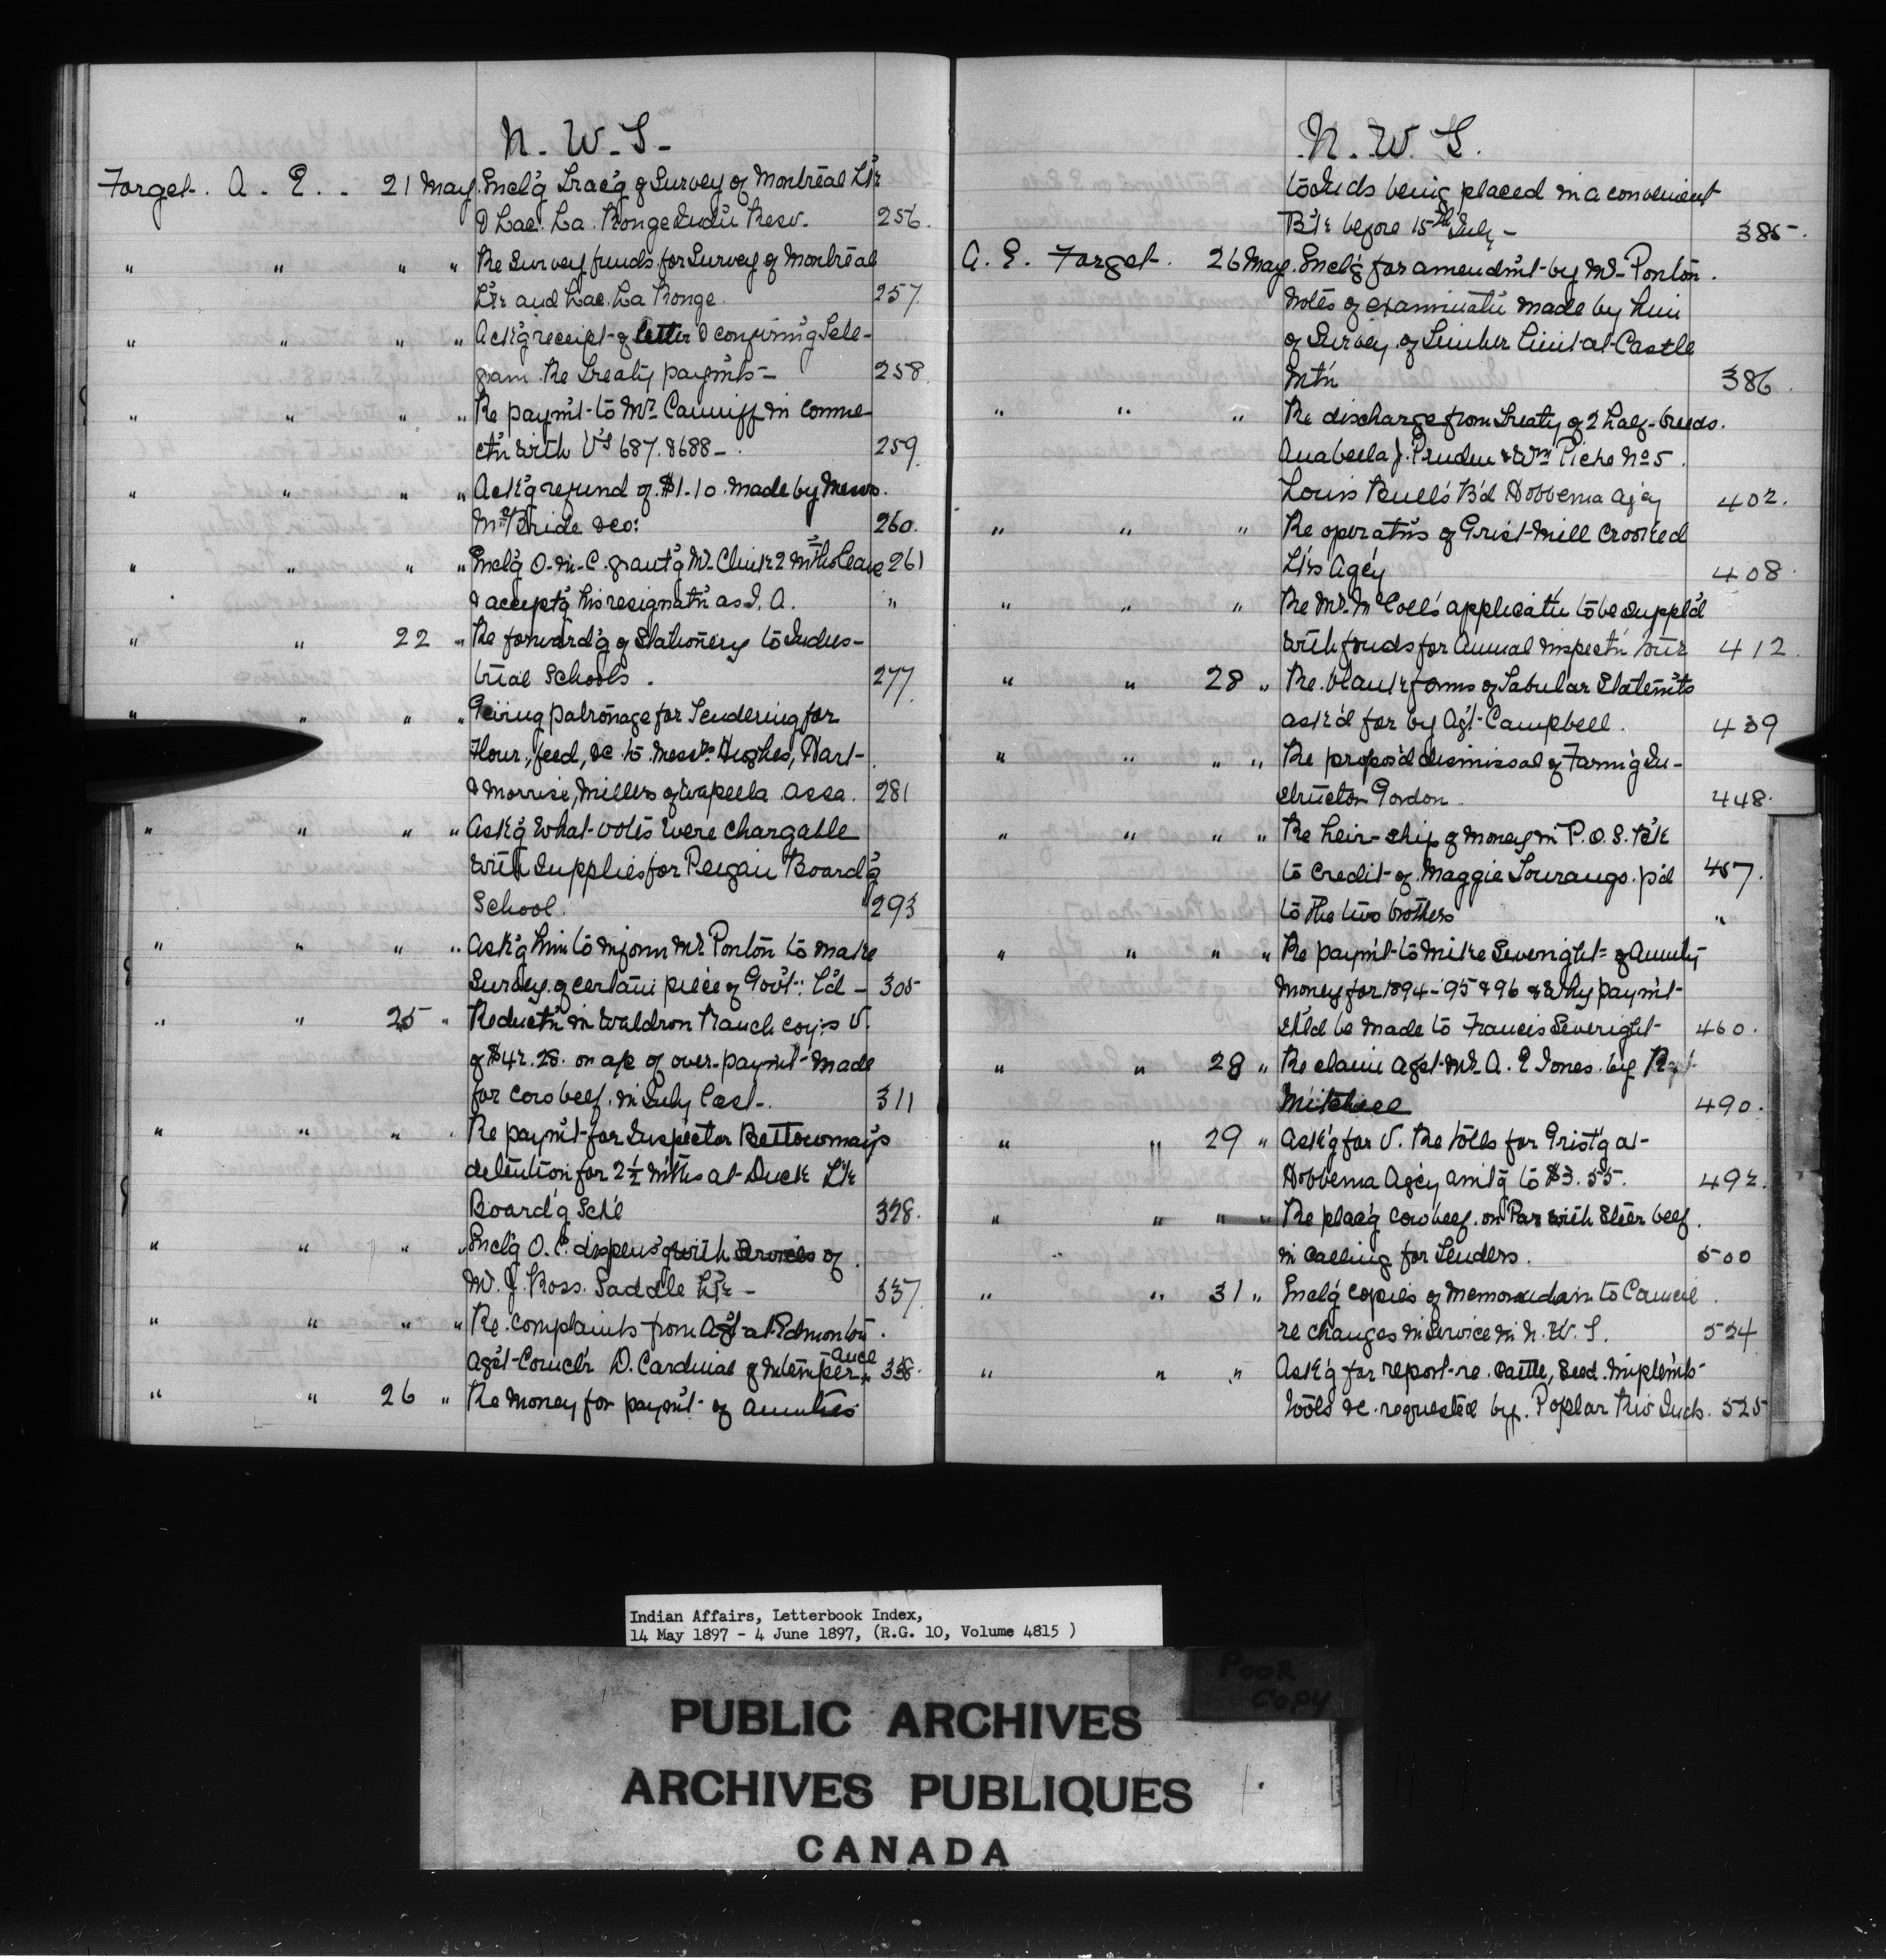 N. W. T.
Forget. A. E. - 21 May. Encl'g Trac'g of Survey of Montreal L'k
& Lac. La. Ronge Indi'n Resv. 256.
" " " " Re Survey funds for Survey of Montreal
L'k and Lac. La Ronge. 257.
" " " " Ack'g receipt of letter & confirm'g Tele-
gram. Re Treaty paym'ts - 258.
" " " " Re paym't to Mr. Canniff in conne-
ct'n with V's 687. & 688 - 259.
" " " " Ack'g refund of $1.10. made by Messrs.
McBride &co: 260.
" " " " Encl'g O-in-C. grant'g Mr. Clink 2 m'ths leave 261
& accept'g his resignat'n as I. A. "
" " 22 " Re forward'g of Stationery to Indus-
trial Schools. 277.
" " " " Giving patronage for Tendering for
Flour, feed, &c to Messrs. Hughes, Hart-
& Morrise, Millers of Wapella Assa. 281
" " " " Ask'g what votes were chargable
with Supplies for Peigan Board'g
School. 293
" " " " Ask'g him to inform Mr Ponton to make
Survey of certain piece of Gov't. L'd - 305
" " 25 " Reduct'n in Waldron Ranch coy's V.
of $42.28. on a/c of over-paym't made
for cow beef. in July last -. 311
" " " " Re paym't for Inspector Bettowmay's
detention for 2½ m'ths at Duck L'k
Board'g Sch'l 328.
" " " " Encl'g O. C. dispens'g with Services of
W. J. Ross. Saddle L'k - 337.
" " " " Re. complaints from Ag't at Edmonton.
Ag'st Counc'lr D. Cardinal of Intemper-ance 338.
" " 26 " Re Money for paym't of annuities
N. W. T.
to Inds being placed in a convenient
B'k before 15th July - 385-.
A. E. Forget. 26 May. Encl'g for amendm't by Mr. Ponton.
notes of examinati'n made by him
of Survey of Timber Limit at Castle
Mt'n 386.
" " " Re discharge from Treaty of 2 half-breeds.
Anabella J. Pruden & Wm Piche No 5.
Louis Bull's B'd Hobbema Ag'cy 402.
" " " Re operat'ns of Grist Mill Crooked
L'ks Ag'cy 408.
" " " Re Mr. McColl's applicati'n to be suppl'd
with funds for annual inspect'n tour 412.
" " 28 " Re. blank forms of Tabular Statem'ts
ask'd for by Ag't Campbell. 439
" " " " Re propos'd dismissal of Farm'g In-
structor Gordon. 448.
" " " " Re heir-ship of money in P. O. S. B'k
to credit of Maggie Tourango. p'd 457.
to the two brothers "
" " " " Re paym't to Mike Severight of Annuity
Money for 1894-'95 & 96 & why paym't
sh'ld be made to Francis Severight 460.
" " 28 " Re claim ag'st Mr. A. E Jones. by
Mitchell 490.
" " 29 " Ask'g for V. Re tolls for Grist'g at
Hobbema Ag'cy am't'g to $3.55. 492.
" " " " Re plac'g cow beef. on Par with Steer beef.
in calling for Tenders. 500
" " 31 " Encl'g copies of memorandam to Council.
re changes in service in N. W. T. 524
" " " Ask'g for report re. cattle, seed. implem'ts
tools &c. requested by. Poplar Riv Inds. 525
Indian Affairs, Letterbook Index,
14 May 1897 - 4 June 1897, (R.G. 10, Volume 4815 )
POOR
COPY
PUBLIC ARCHIVES
ARCHIVES PUBLIQUES
CANADA